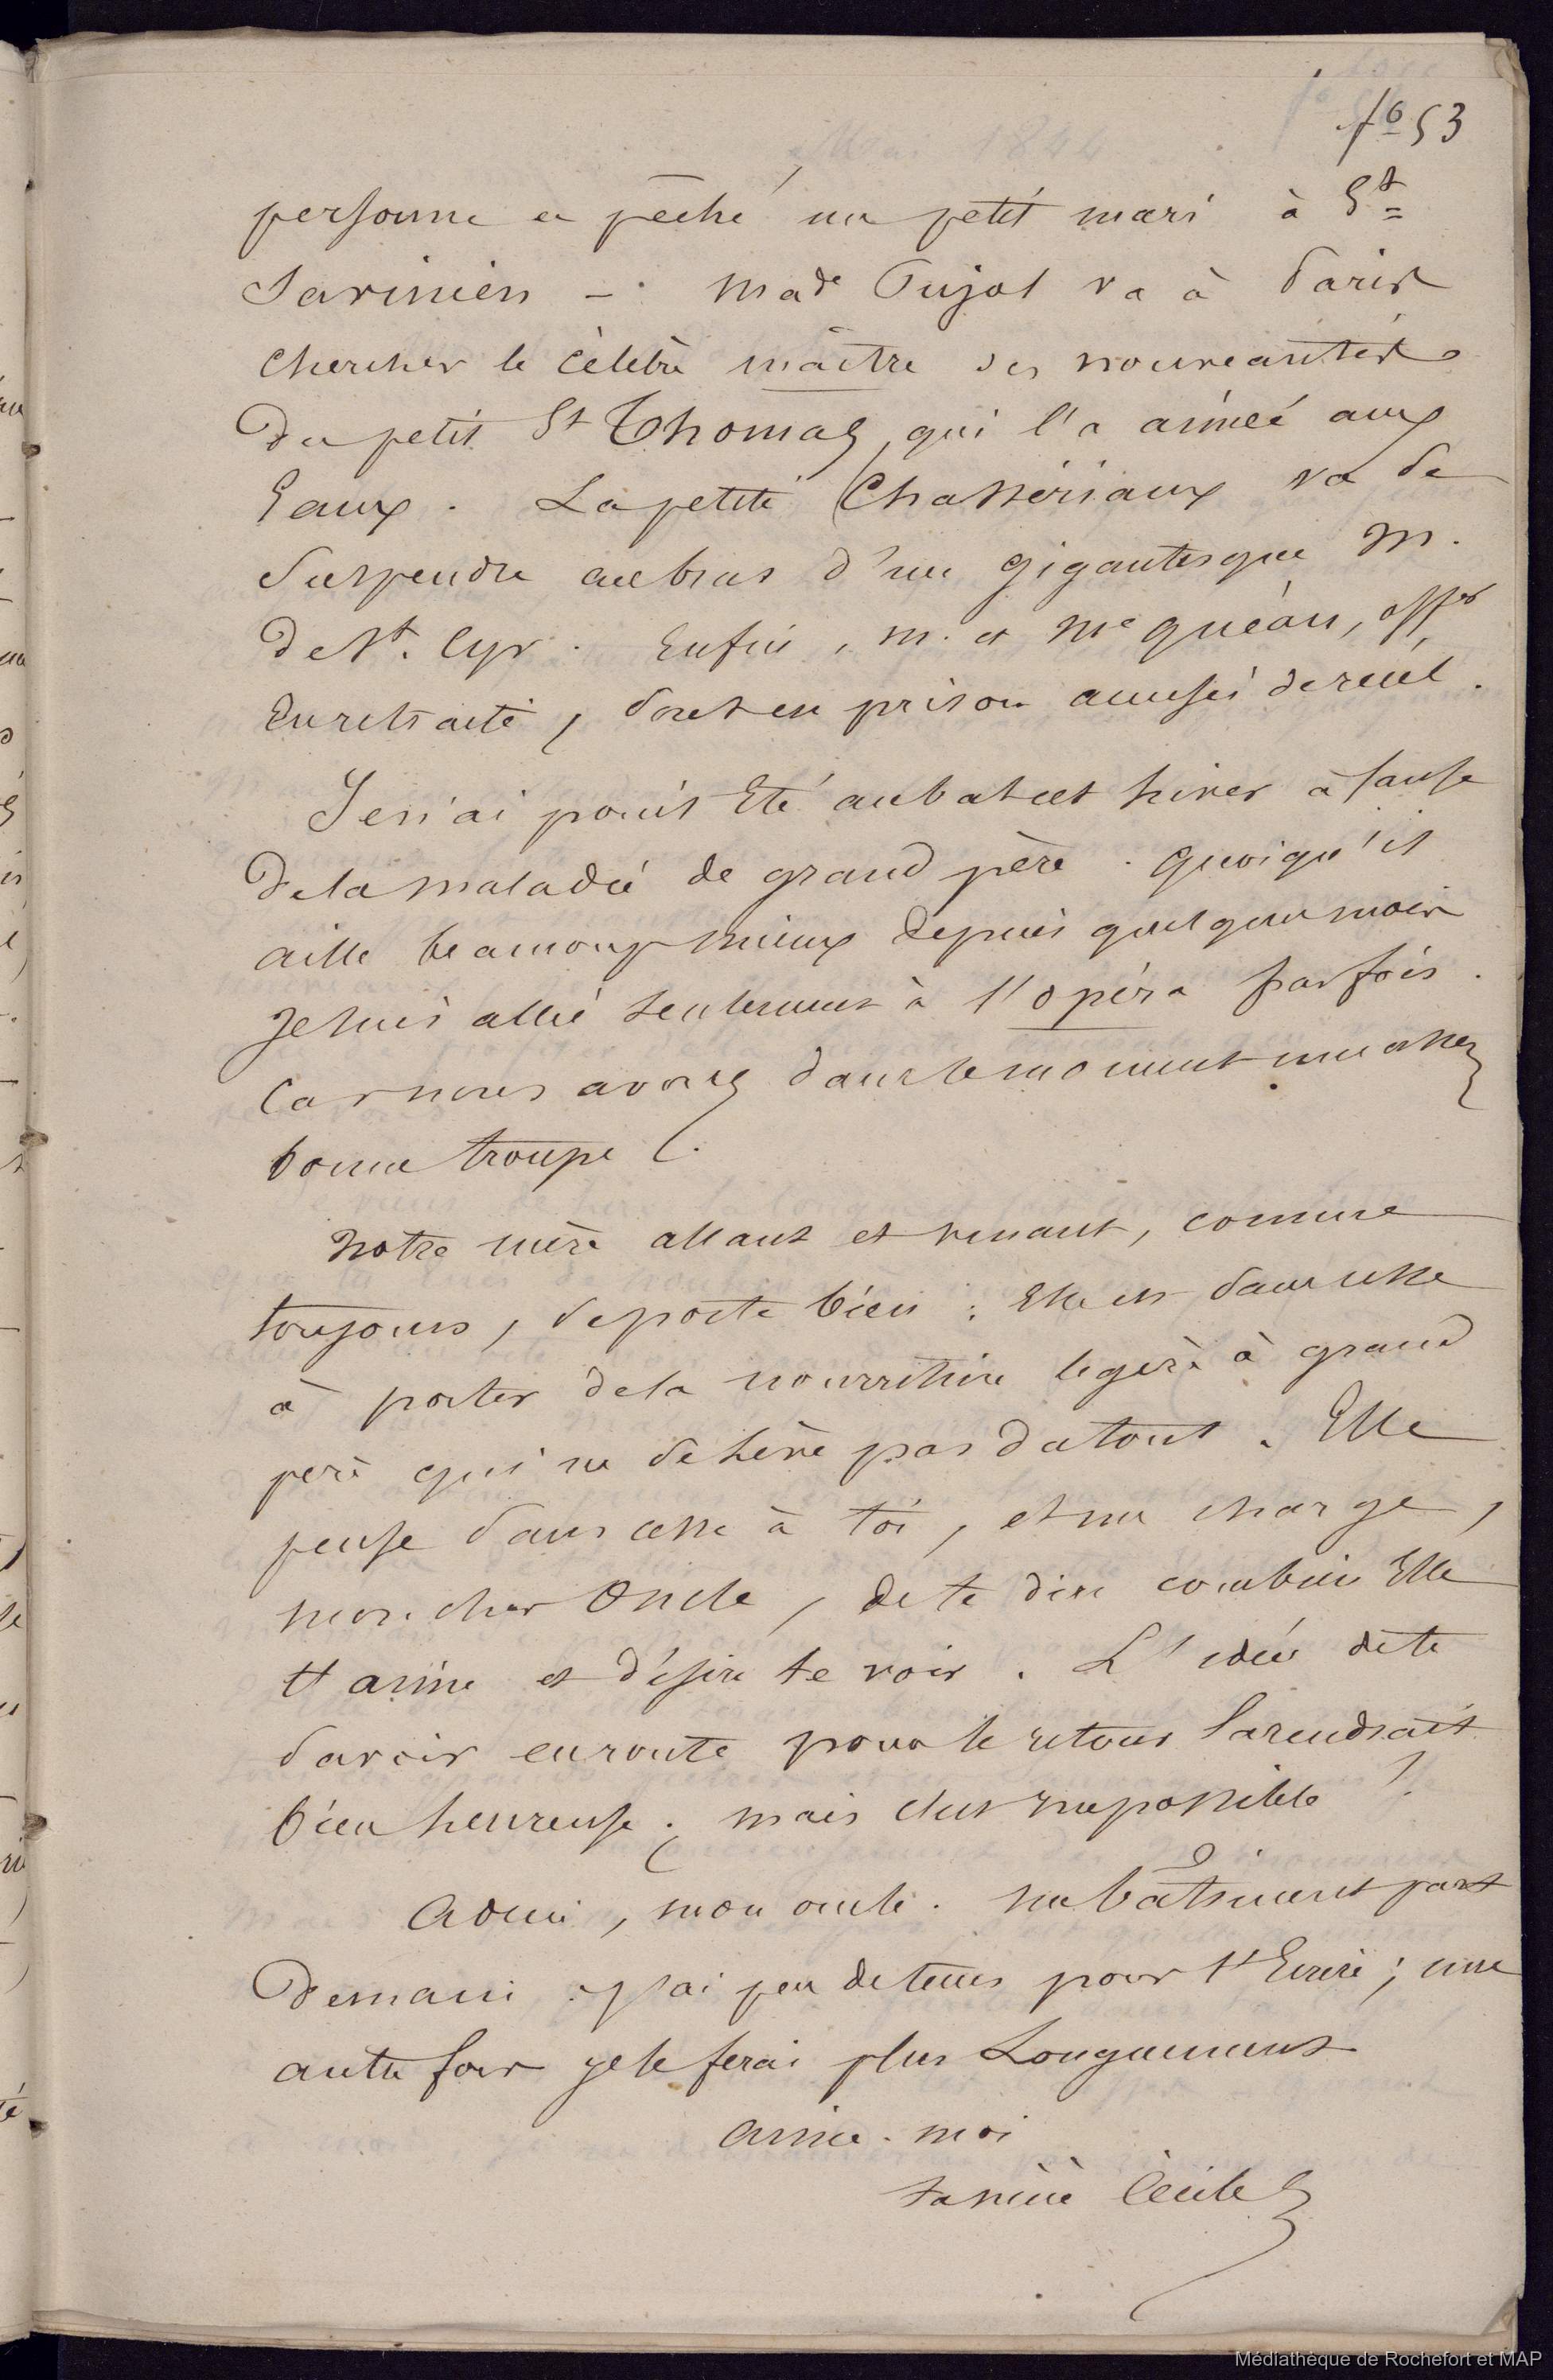 fo 53
personne a pêché un petit mari à St
Savinien - Made Pujol va à Paris
chercher le célèbre maître des nouveautés
du petit St Thomas, qui l'a aimée aux
Eaux. La petite Chassériaux va se
suspendre au bras d'un gigantesque M.
de St. Cyr. Enfin, M. et Me quéau, offer
en retraite, sont en prison accusés de
Je n'ai point été au bal cet hiver à cause
de la maladie de grand père. Quoiqu'il
aille beaucoup mieux depuis quelques mois
Je suis allée seulement à l'opéra parfois.
Car nous avons dans le moment une assez
bonne troupe.
Notre mère allant et venant, comme
toujours, se porte bien. Elle est sans cesse
à porter de la nourriture legère à grand
père qui ne se lève pas du tout. Elle
pense sans cesse à toi, et me charge,
mon cher Oncle, de te dire combien Elle
t'aime et désire te voir. L'idée de te
savoir en route pour le retour la rendrait
bien heureuse; mais c'est impossible!
Adieu, mon oncle. un bâtiment part
Demain. J'ai peu de tems pour t'Ecrire; une
autre fois je le ferai plus Longuement
aime-moi
ta nièce Cécile
Médiathèque de Rochefort et MAP